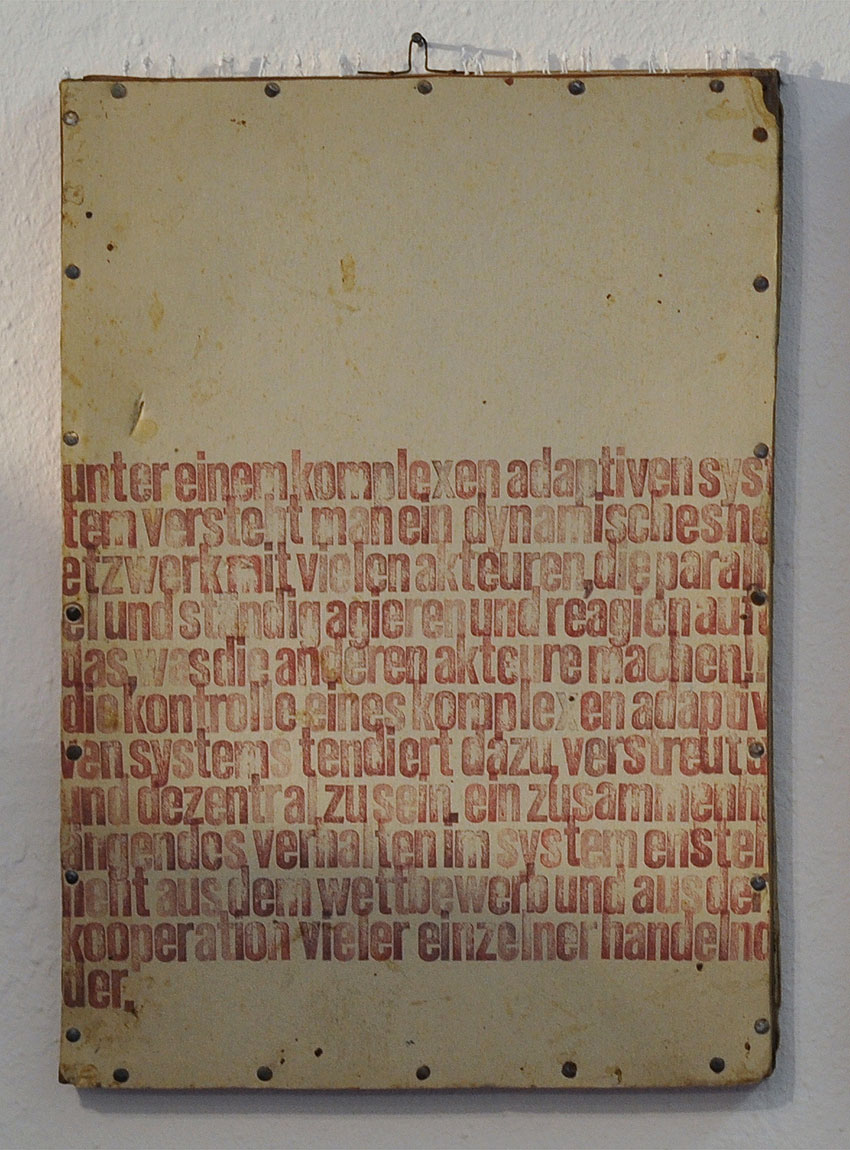 unter einem komplexen adaptiven syst
tem versteht man ein dynamisches ne
etzwerk mit vielen akteuren, die parall
el und ständig agieren und reagien auf
das, was die anderen akteure machen!!
die kontrolle eines komplexen adaptiv
ven systems tendiert dazu, verstreut u
und dezentral zu sein. ein zusammenh
ängendes verhalten im systemensteh
heht aus dem wettbewerb und aus der
kooperation vieler einzelner handelnd
der.